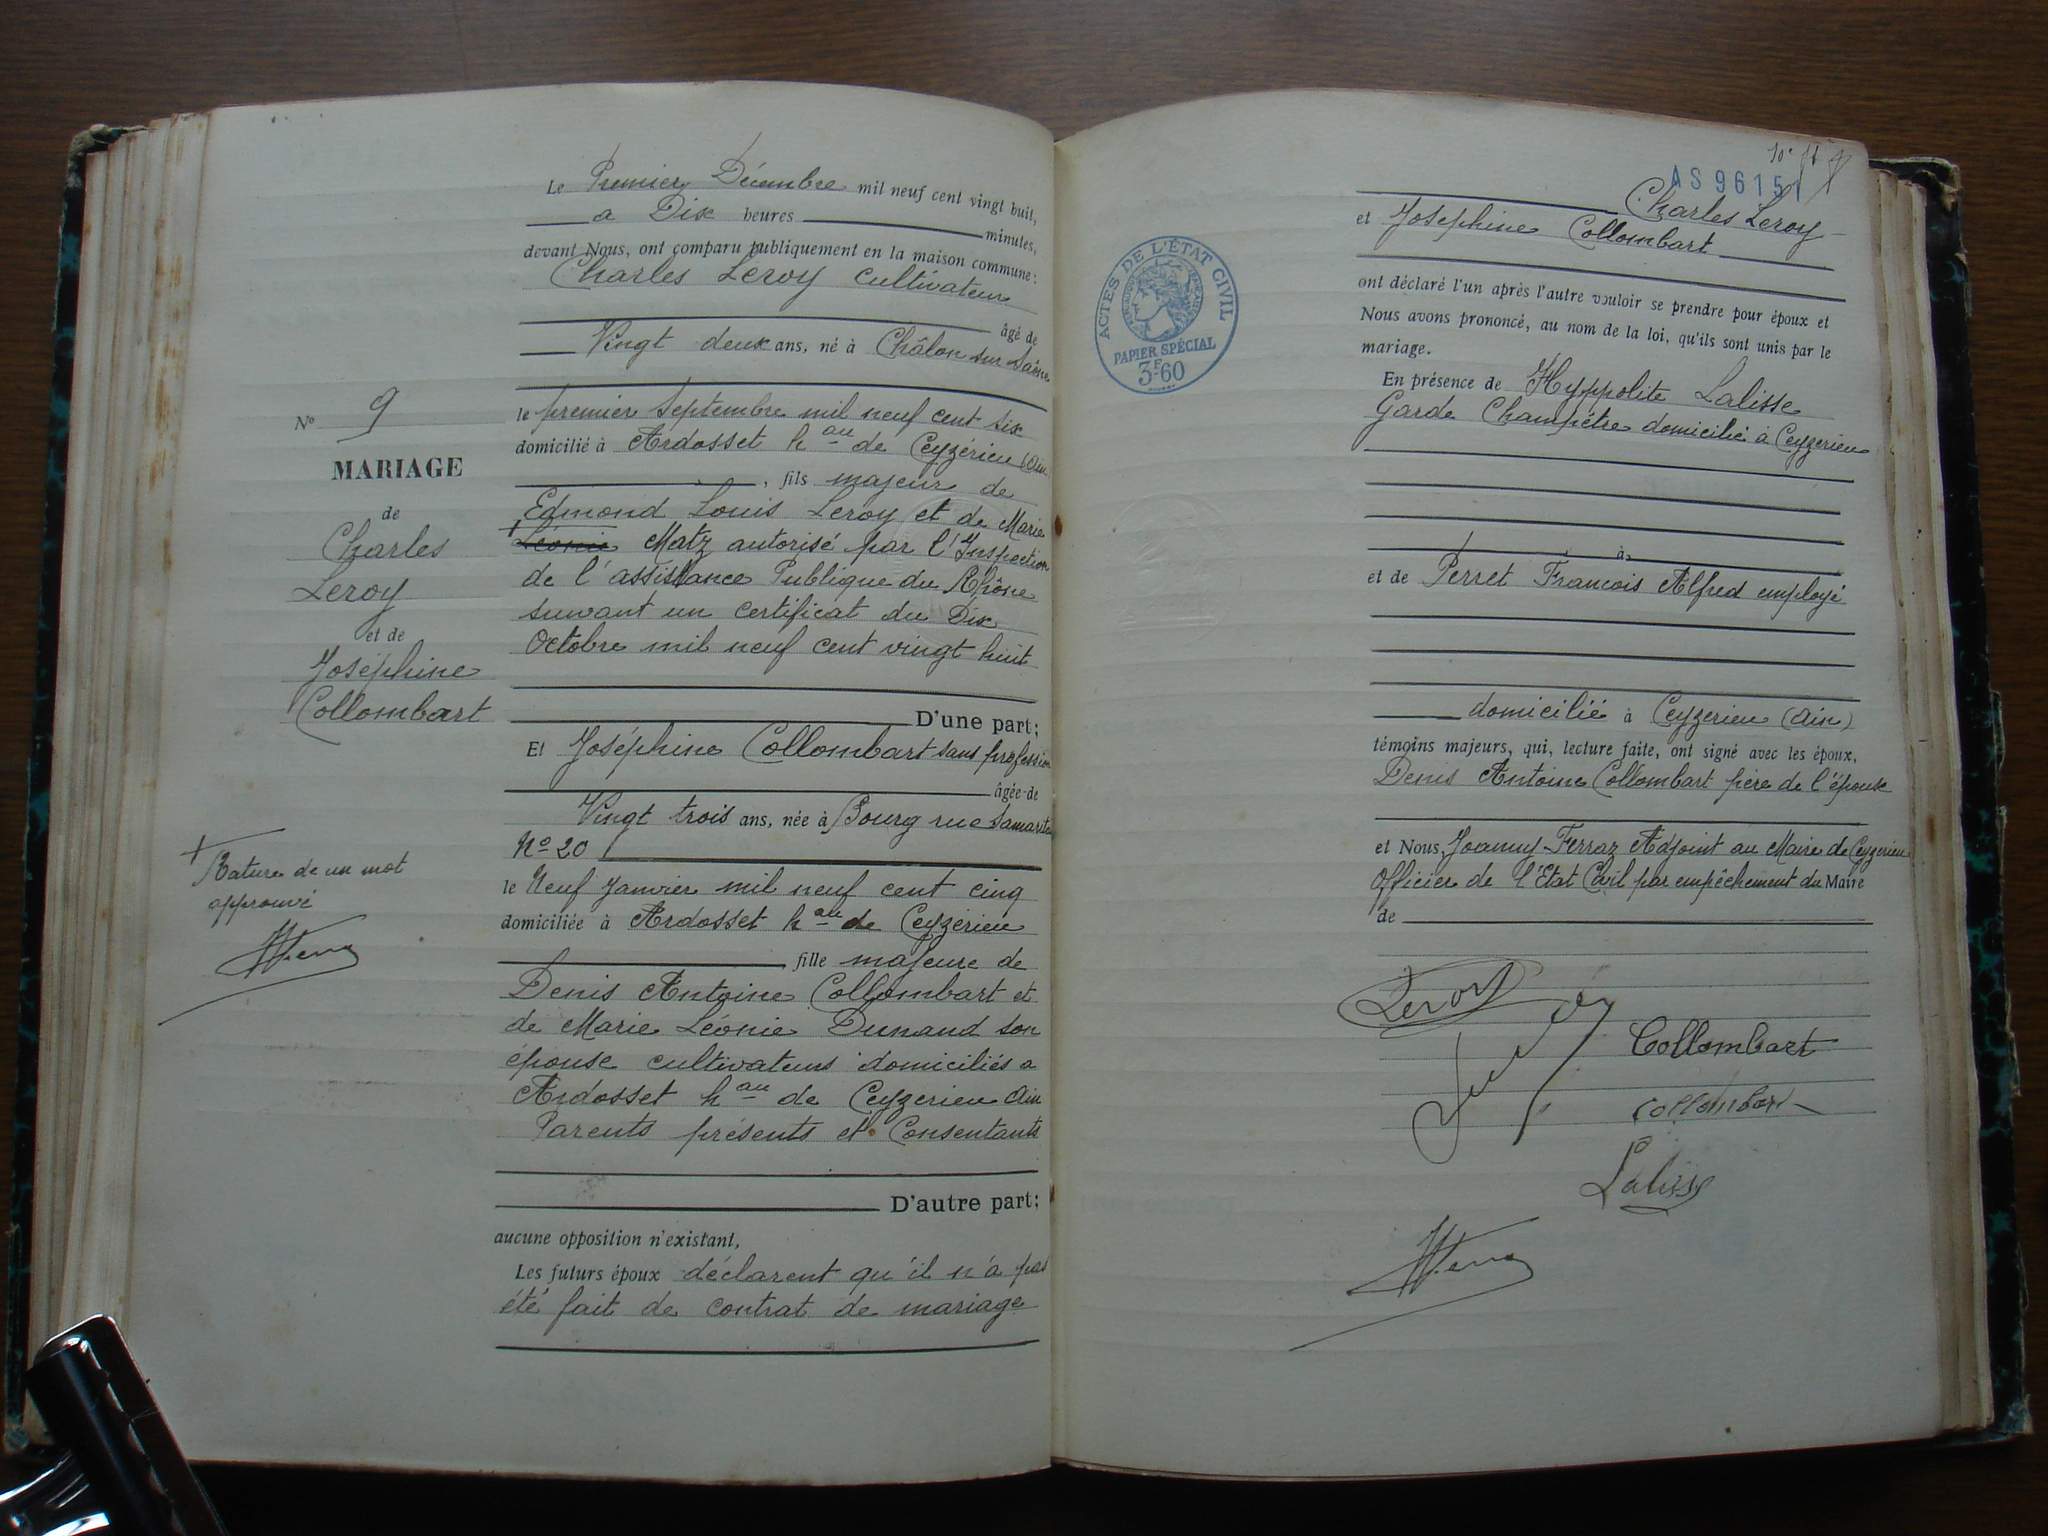 Le Premier Décembre mil neuf cent vingt huit,
a Dix heures minutes,
devant Nous, ont comparu publiquement en la maison commune:
Charles Leroy cultivateur
âgé de
Vingt deux ans, né à Châlon sur Saône
le premier Septembre mil neuf cent six
domicilié à Ardosset hau de Ceyzérieu (Ain
, fils majeur de
Edmond Louis Leroy et de Marie
+ Léonie Matz autorisé par l'Inspection
de l'assistance Publique du Rhône
suivant un certificat du Dix
Octobre mil neuf cent vingt huit
D'une part;
Et Joséphine Collombart sans profession
âgée de
Vingt trois ans, née à Bourg rue Samaritaine
No 20
le Neuf Janvier mil neuf cent cinq
domiciliée à Ardosset hau de Ceyzérieu
fille majeure de
Denis Antoine Collombart et
de Marie Léonie Dunand son
épouse cultivateurs domiciliés a
Ardosset hau de Ceyzerieu Ain
Parents présents et Consentants
D'autre part;
aucune opposition n'existant,
Les futurs époux déclarent qu'il n'a pas
été fait de contrat de mariage
No 9
MARIAGE
de
Charles
Leroy
et de
Joséphine
Collombart
+
Rature de un mot
approuvé
10e
AS 96151
Charles Leroy
et Joséphine Collombart
ont déclaré l'un après l'autre vouloir se prendre pour époux et
Nous avons prononcé, au nom de la loi, qu'ils sont unis par le
mariage.
En présence de Hyppolite Lalisse
Garde Champêtre domicilié à Ceyzerieu
à
et de Perret François Alfred employé
domicilié à Ceyzerieu (Ain)
témoins majeurs, qui, lecture faite, ont signé avec les époux,
Denis Antoine Collombart père de l'épouse
et Nous, Joanny Ferraz Adjoint au Maire de Ceyzerieu
Officier de l'Etat Civil par empêchement du Maire
de
Leroy
Collombart
Collombart
Lalisse
ACTES DE L'ÉTAT CIVIL
PAPIER SPÉCIAL
3F60